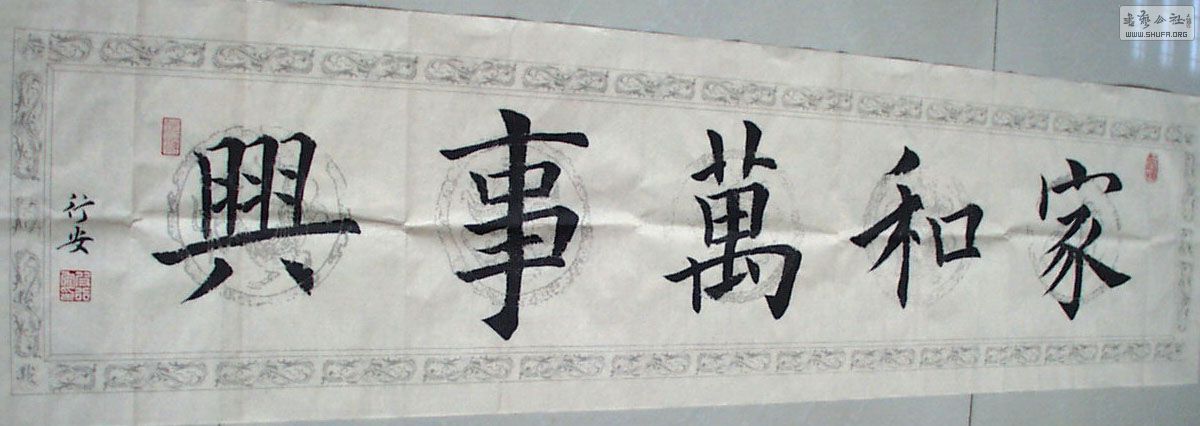 家和萬事興
行安
書藝公社
WWW.SHUFA.ORG